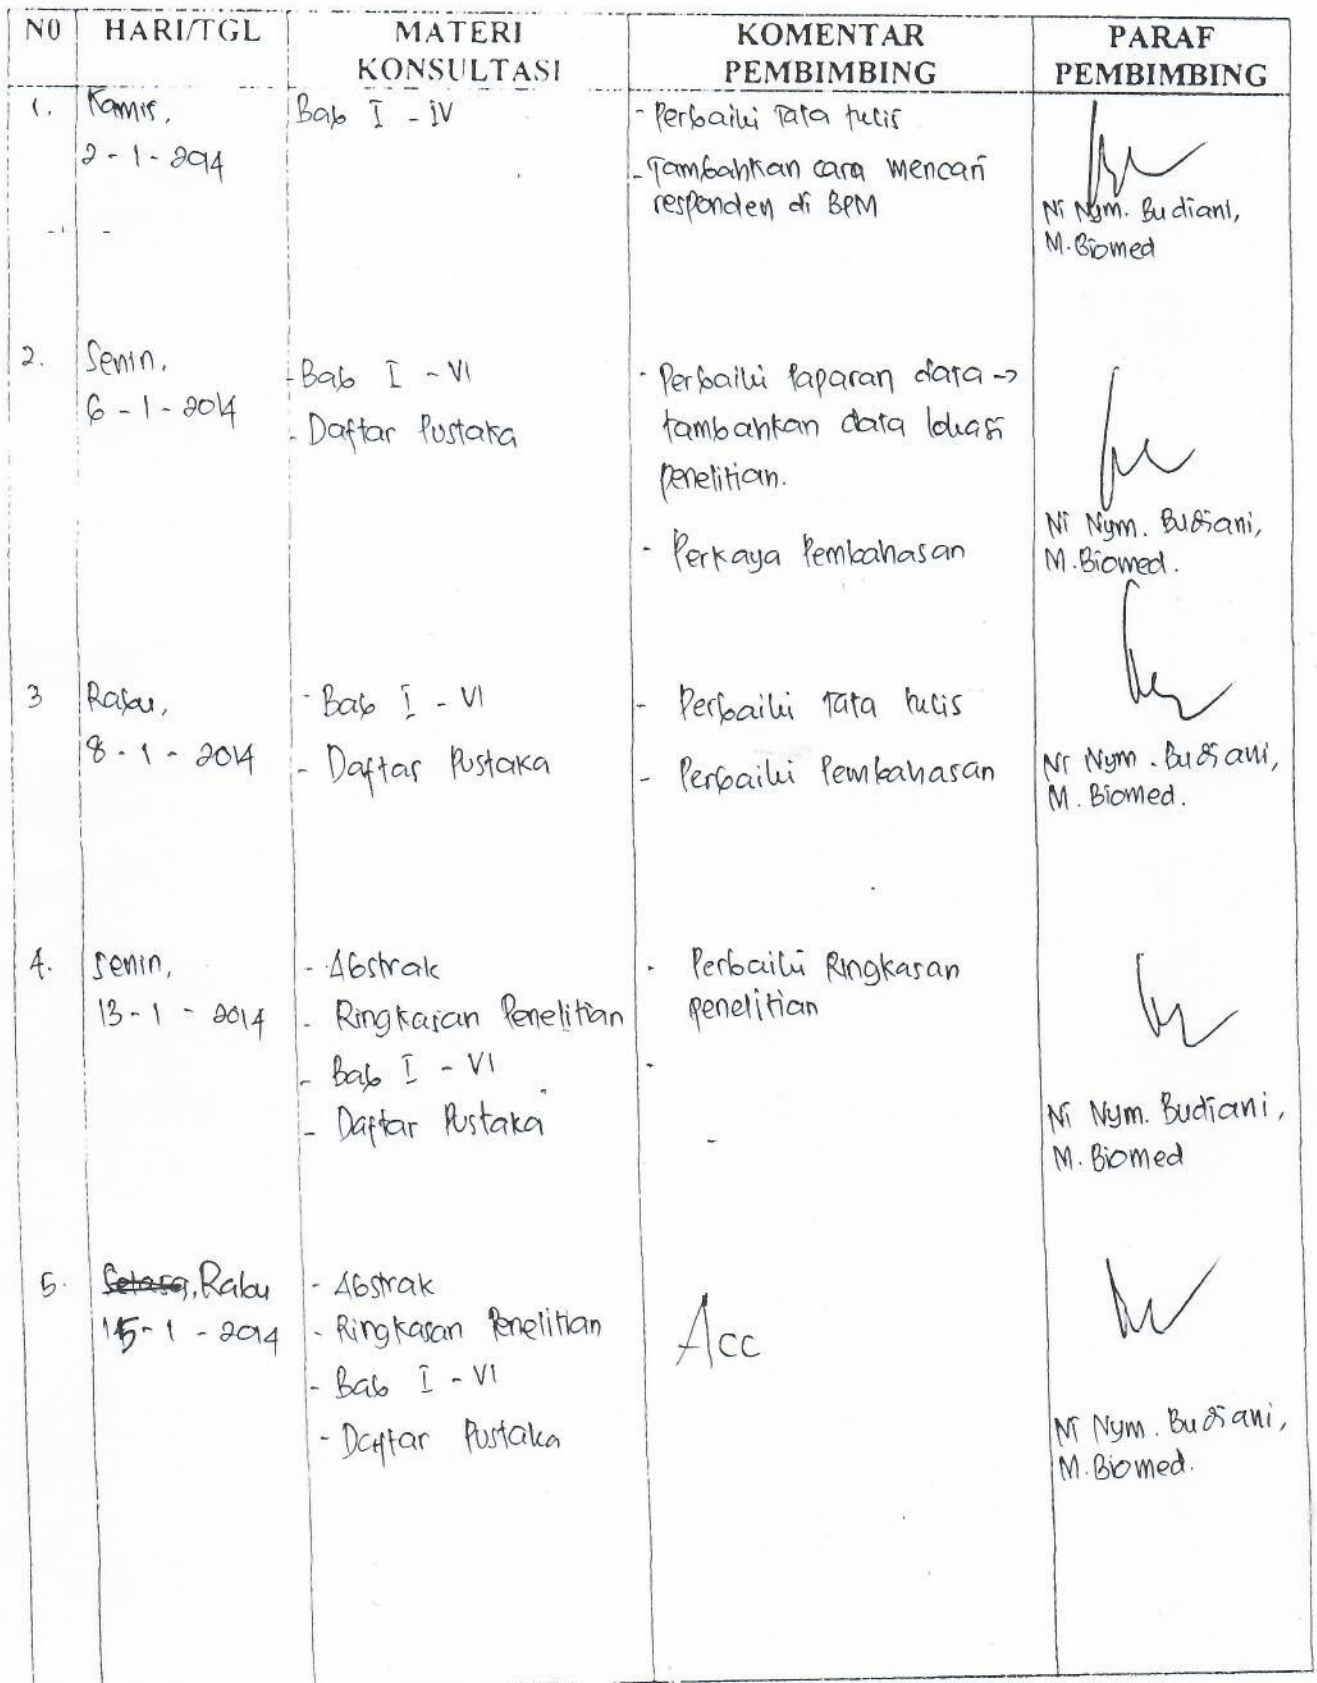 NO HARI/TGL MATERI KONSULTASI KOMENTAR PEMBIMBING PARAF PEMBIMBING
1. Kamis,
2 - 1 - 2014
Bab I - IV
- Perbaiki Tata tulis
- Tambahkan cara mencari
responden di BPM
Ni Nym. Budiani,
M.Biomed
2. Senin,
6 - 1 - 2014
- Bab I - VI
- Daftar Pustaka
- Perbaiki Paparan data ->
tambahkan data lokasi
penelitian.
- Perkaya Pembahasan
Ni Nym. Budiani,
M.Biomed.
3 Rabu,
8 - 1 - 2014
- Bab I - VI
- Daftar Pustaka
- Perbaiki Tata tulis
- Perbaiki Pembahasan
Ni Nym. Budiani,
M. Biomed.
4. Senin,
13 - 1 - 2014
- Abstrak
- Ringkasan Penelitian
- Bab I - VI
- Daftar Pustaka
- Perbaiki Ringkasan
penelitian
-
-
Ni Nym. Budiani,
M. Biomed
5. Selasa, Rabu
15 - 1 - 2014
- Abstrak
- Ringkasan Penelitian
- Bab I - VI
- Daftar Pustaka
Acc
Ni Nym. Budiani,
M.Biomed.